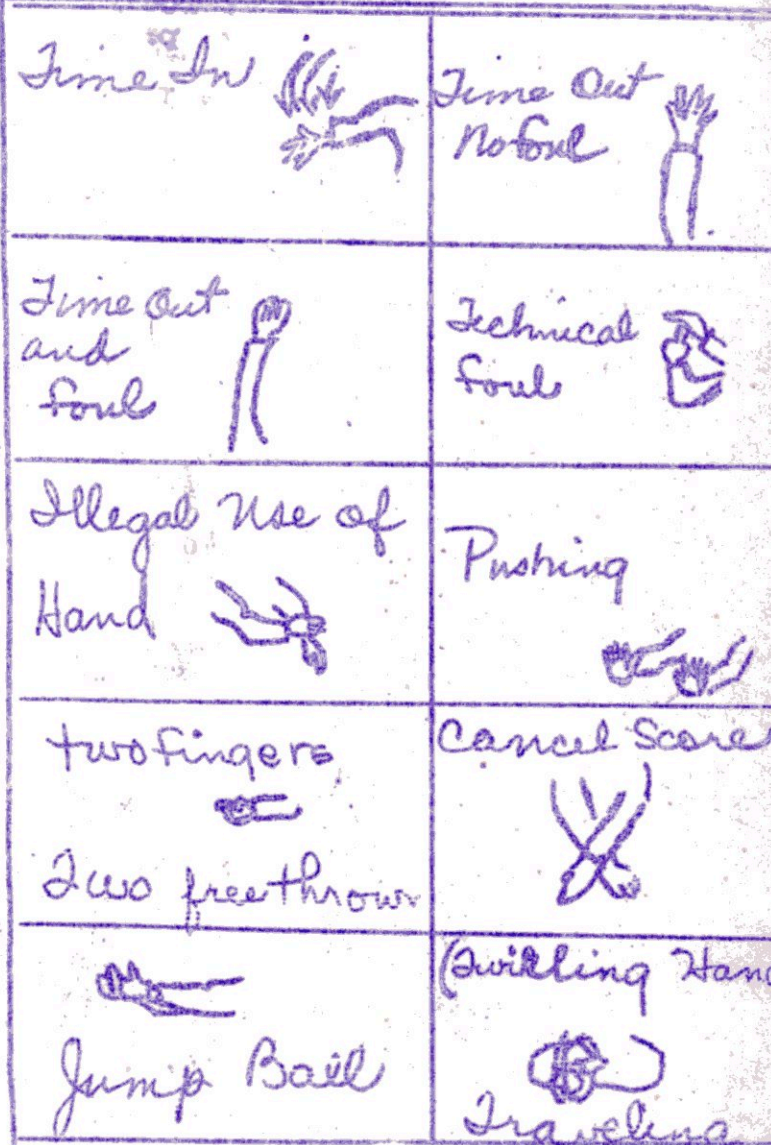 Time In
Time Out
No foul
Time Out
and
foul
Technical
foul
Illegal Use of
Hand
Pushing
two fingers
Two free thrown
Cancel Score
Jump Ball
(Twirling Hand
Traveling